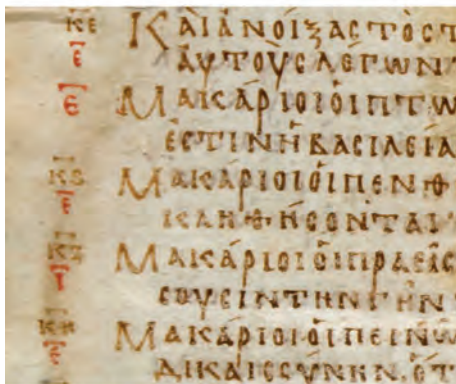 ΚΕ ΚΑΙ ΑΝΟΙΞΑϹ ΤΟ ϹΤ
Ε ΑΥΤΟΥϹ ΛΕΓΩΝ
Ε ΜΑΚΑΡΙΟΙ ΟΙ ΠΤΩ
ΕϹΤΙΝ Η ΒΑϹΙΛΕΙΑ
ΚϚ ΜΑΚΑΡΙΟΙ ΟΙ ΠΕΝΘ
Ε ΚΛΗΘΗϹΟΝΤΑΙ
ΚΖ ΜΑΚΑΡΙΟΙ ΟΙ ΠΡΑΕΙϹ
Ι ϹΟΥϹΙΝ ΤΗΝ ΓΗΝ
ΚΗ ΜΑΚΑΡΙΟΙ ΟΙ ΠΕΙΝΩ
Ε ΔΙΚΑΙΟϹΥΝΗΝ. ΟΤ